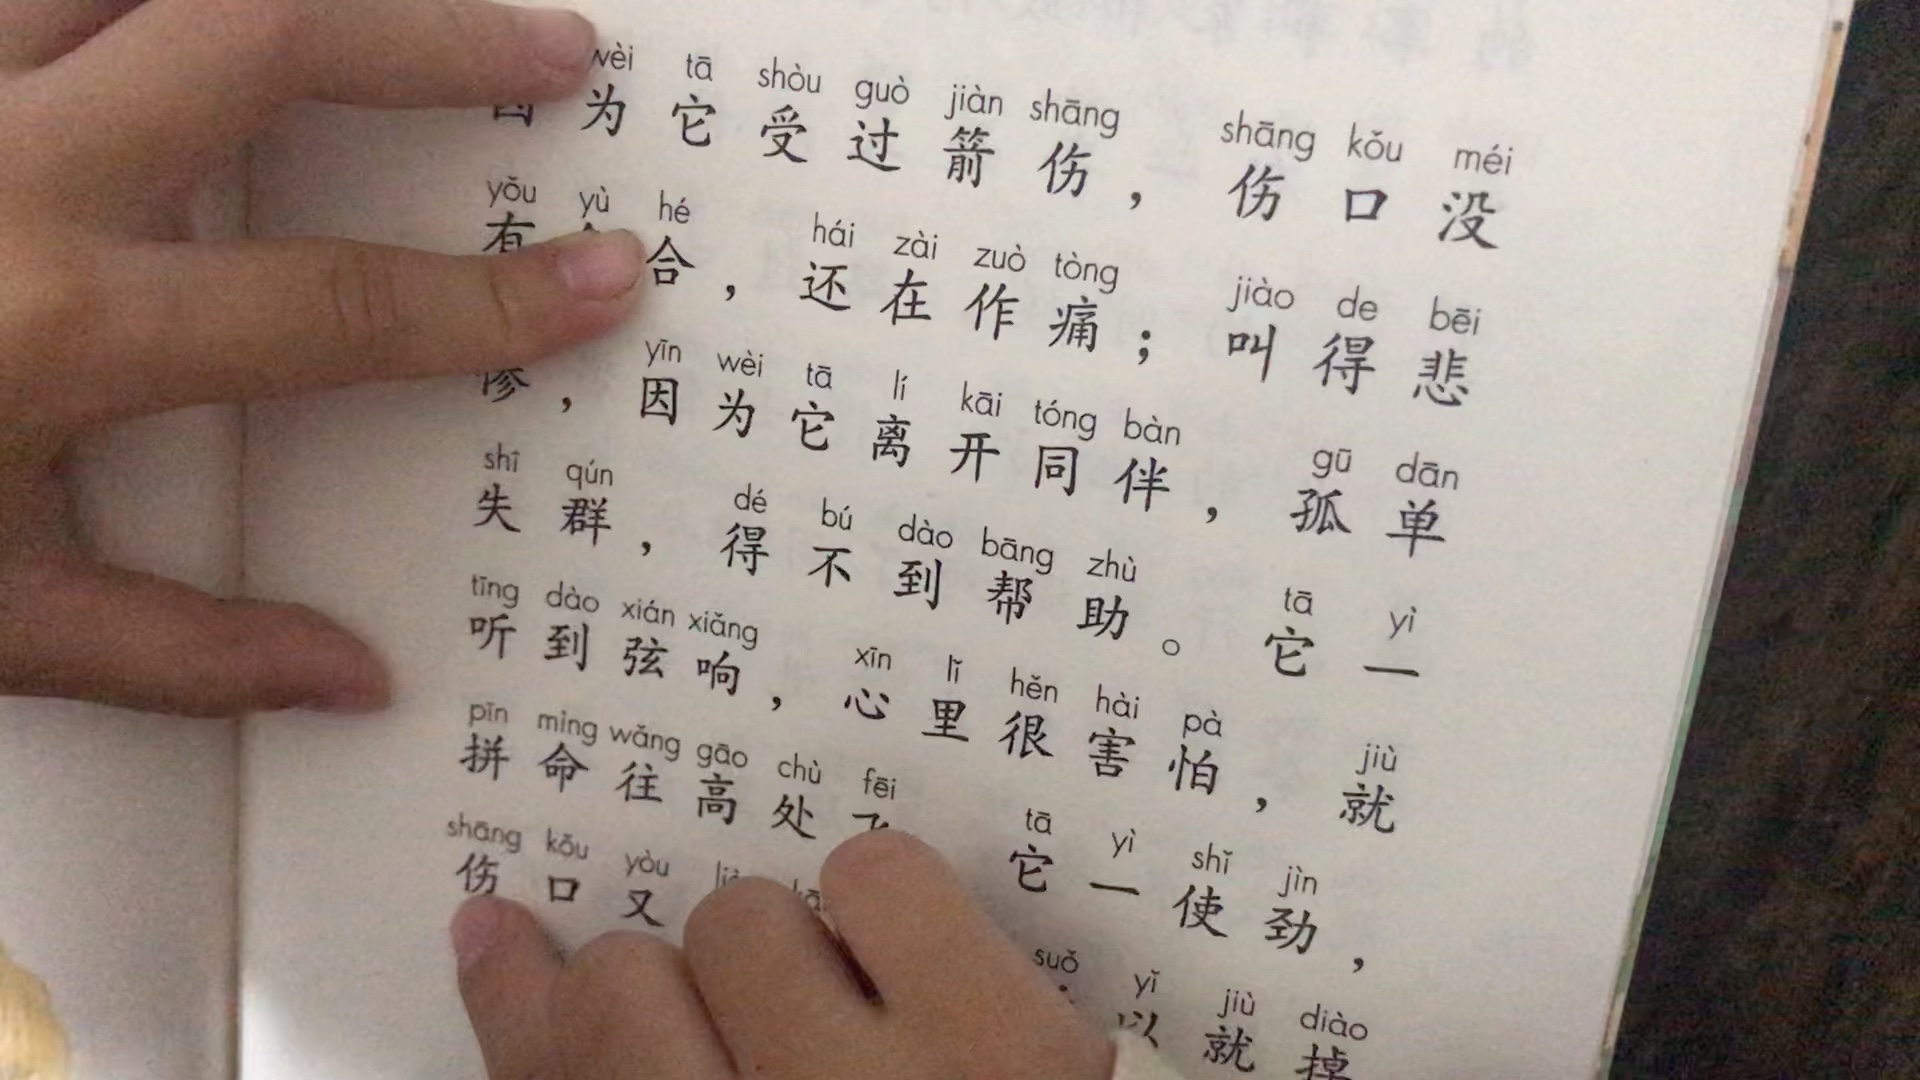 wèi tā shòu guò jiàn shāng shāng kǒu méi
因为它受过箭伤，伤口没
yǒu yù hé hái zài zuò tòng jiào de bēi
有合，还在作痛；叫得悲
yīn wèi tā lí kāi tóng bàn gū dān
惨，因为它离开同伴，孤单
shī qún dé bú dào bāng zhù tā yì
失群，得不到帮助。它一
tīng dào xián xiǎng xīn lǐ hěn hài pà jiù
听到弦响，心里很害怕，就
pīn mìng wǎng gāo chù fēi tā yì shǐ jìn
拼命往高处飞它一使劲，
shāng kǒu yòu suǒ yǐ jiù diào
伤口又以就掉